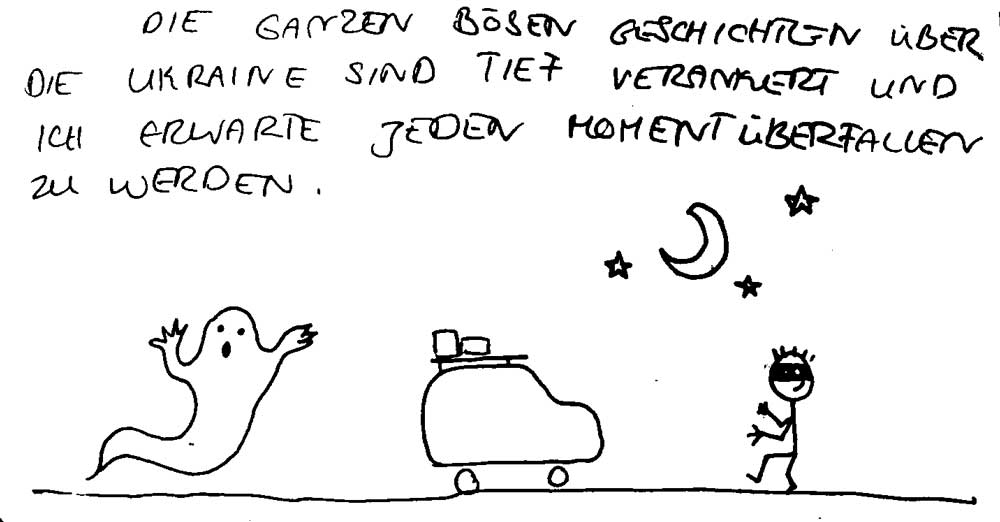 DIE GANZEN BÖSEN GESCHICHTEN ÜBER
DIE UKRAINE SIND TIEF VERANKERT UND
ICH ERWARTE JEDEN MOMENT ÜBERFALLEN
ZU WERDEN.